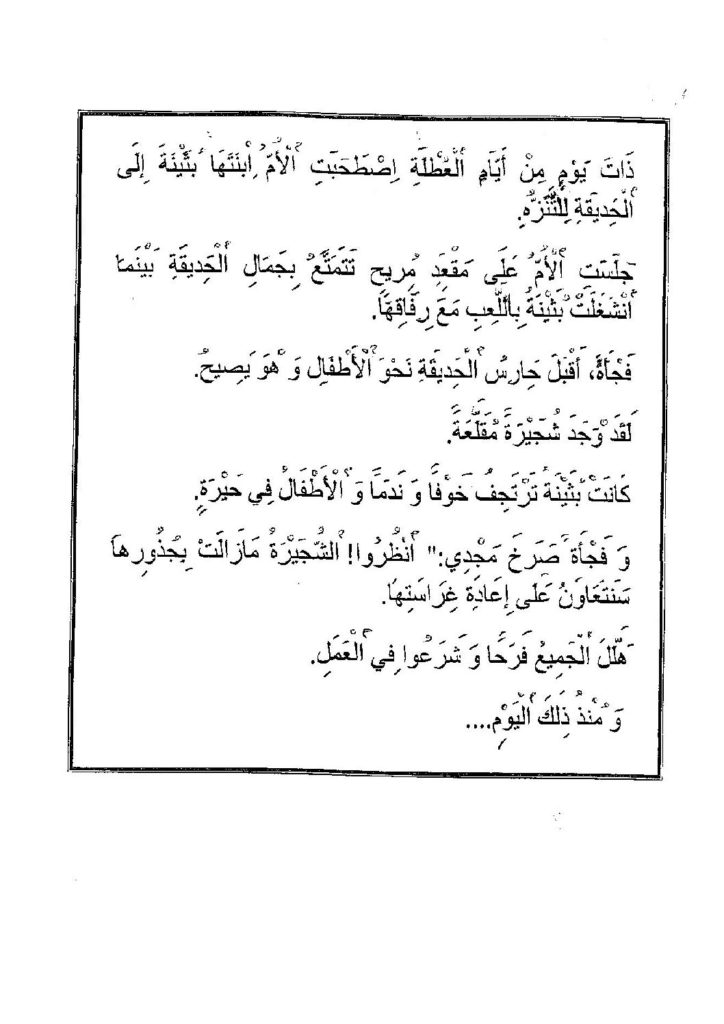 ذَاتَ يَوْمٍ مِنْ أَيَّامِ اَلْعُطْلَةِ اِصْطَحَبَتِ اَلْأُمُّ اِبْنَتَهَا بُثَيْنَةَ إِلَى
اَلْحَدِيقَةِ لِلتَّنَزُّهِ.
جَلَسَتِ اَلْأُمُّ عَلَى مَقْعَدٍ مُرِيحٍ تَتَمَتَّعُ بِجَمَالِ اَلْحَدِيقَةِ بَيْنَمَا
اَنْشَغَلَتْ بُثَيْنَةُ بِاللَّعِبِ مَعَ رِفَاقِهَا.
فَجْأَةً، أَقْبَلَ حَارِسُ اَلْحَدِيقَةِ نَحْوَ اَلْأَطْفَالِ وَ هُوَ يَصِيحُ.
لَقَدْ وَجَدَ شُجَيْرَةً مُقَلَّعَةً.
كَانَتْ بُثَيْنَةُ تَرْتَجِفُ خَوْفًا وَ نَدَمًا وَ اَلْأَطْفَالُ فِي حَيْرَةٍ.
وَ فَجْأَةً صَرَخَ مَجْدِي:" اُنْظُرُوا! اَلشُّجَيْرَةُ مَازَالَتْ بِجُذُورِهَا
سَنَتَعَاوَنُ عَلَى إِعَادَةِ غِرَاسَتِهَا.
هَلَّلَ اَلْجَمِيعُ فَرَحًا وَ شَرَعُوا فِي اَلْعَمَلِ.
وَ مُنْذُ ذَلِكَ اَلْيَوْمِ....